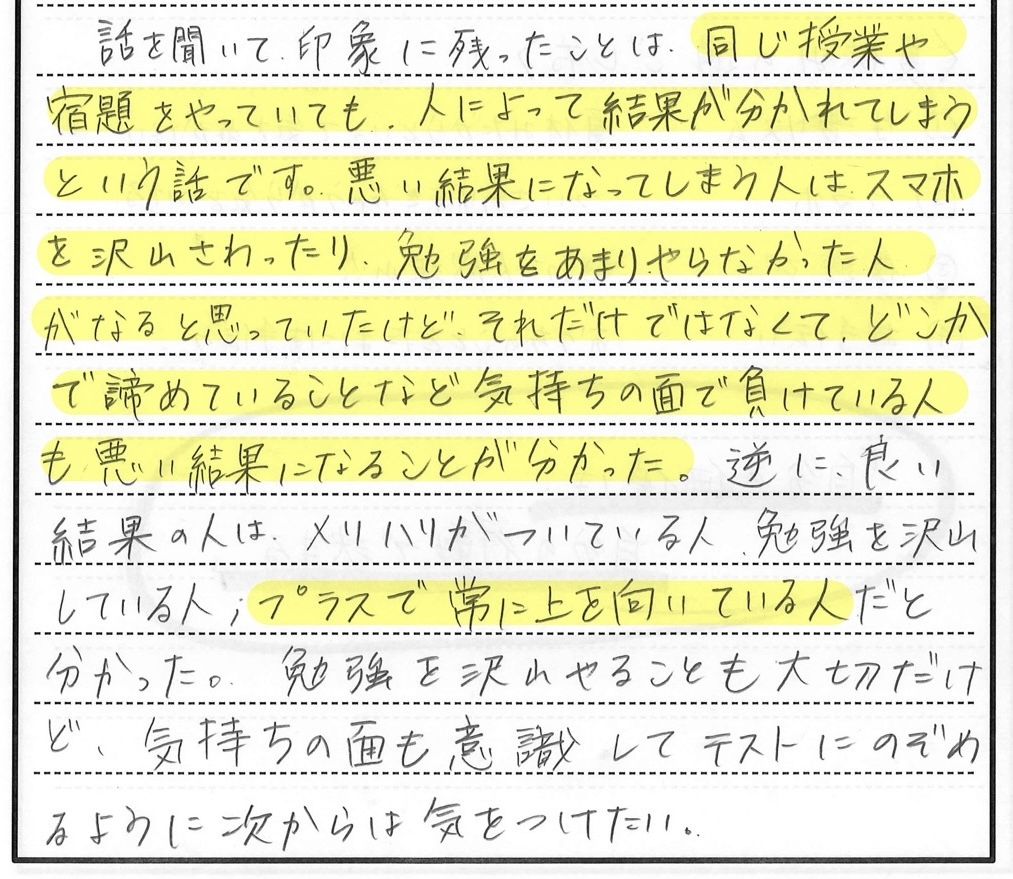 話を聞いて、印象に残ったことは、同じ授業や
宿題をやっていても、人によって結果が分かれてしまう
という話です。悪い結果になってしまう人は、スマホ
を沢山さわったり、勉強をあまりやらなかった人
がなると思っていたけど、それだけではなくて、どこか
で諦めていることなど気持ちの面で負けている人
も悪い結果になることが分かった。逆に、良い
結果の人は、メリハリがついている人、勉強を沢山
している人、プラスで常に上を向いている人だと
分かった。勉強を沢山やることも大切だけ
ど、気持ちの面も意識してテストにのぞめ
るように次からは気をつけたい。